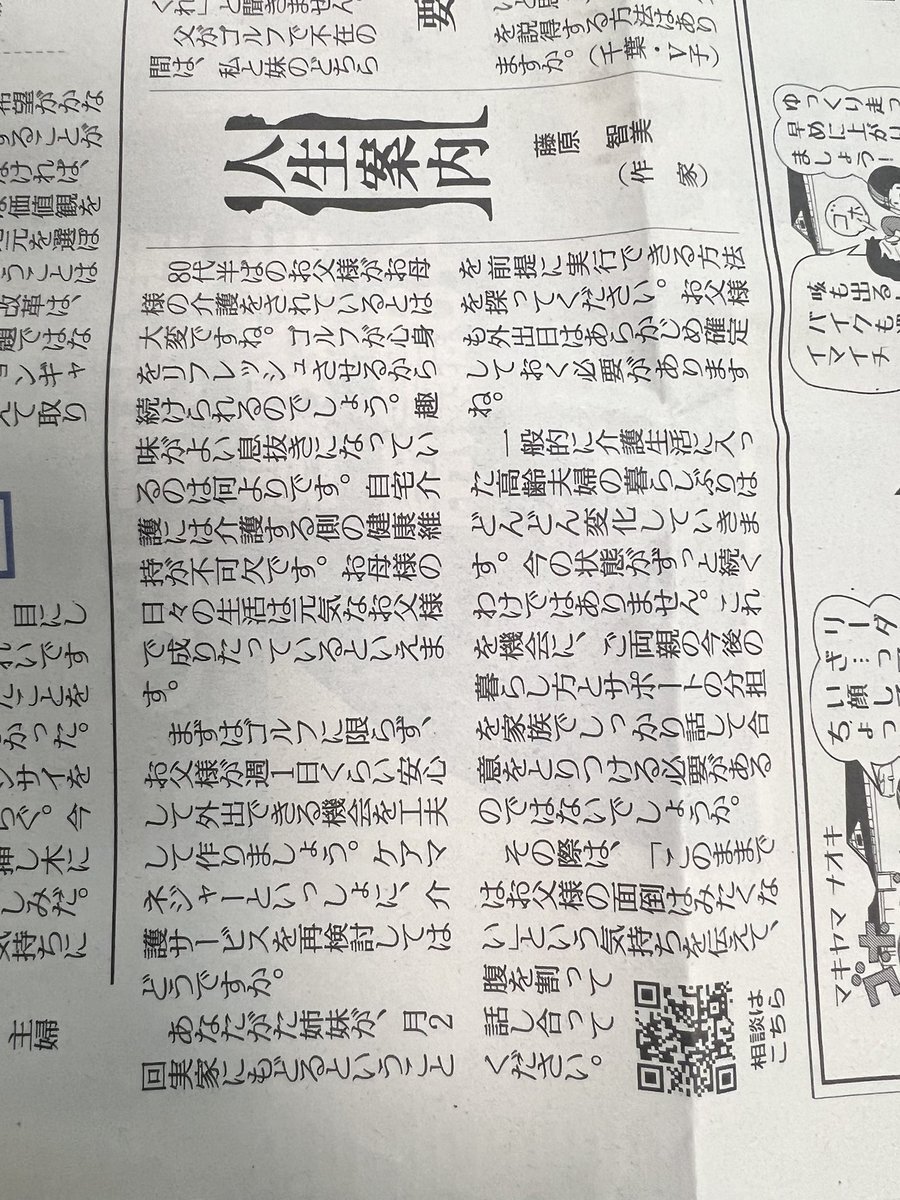 くれ」と聞きません
父がゴルフで不在の
間は、私と妹のどちら
要
を説得する方法はあり
ますか。（千葉・V子）
人生案内
藤原 智美
（作家）
80代半ばのお父様がお母
様の介護をされているとは
大変ですね。ゴルフが心身
をリフレッシュさせるから
続けられるのでしょう。趣
味がよい息抜きになってい
るのは何よりです。自宅介
護には介護する側の健康維
持が不可欠です。お母様の
日々の生活は元気なお父様
で成りたっているといえま
す。
まずはゴルフに限らず、
お父様が週1日くらい安心
して外出できる機会を工夫
して作りましょう。ケアマ
ネジャーといっしょに、介
護サービスを再検討しては
どうですか。
あなたがた姉妹が、月2
回実家にもどるということ
を前提に実行できる方法
を探ってください。お父様
も外出日はあらかじめ確定
しておく必要があります
ね。
一般的に介護生活に入っ
た高齢夫婦の暮らしぶりは
どんどん変化していきま
す。今の状態がずっと続く
わけではありません。これ
を機会に、ご両親の今後の
暮らし方とサポートの分担
を家族でしっかり話して合
意をとりつける必要がある
のではないでしょうか。
その際は、「このままで
はお父様の面倒はみたくな
い」という気持ちを伝えて、
腹を割って
話し合って
ください。
相談は
こちら
希望がかな
することが
なければ、
価値観を
元を選ぼ
うことは
改革は、
題ではな
ョンキャ
えて取り
目にし
れいです
たことを
かった。
ンサイを
らぐ。今
挿し木に
しみだ。
気持ちに
主婦
ゆっくり走って
早めに上がり
ましょう！
ゴホ
咳も出る
バイクも
イマイチ
リーダー
ちょっ
マキヤマ ナオキ